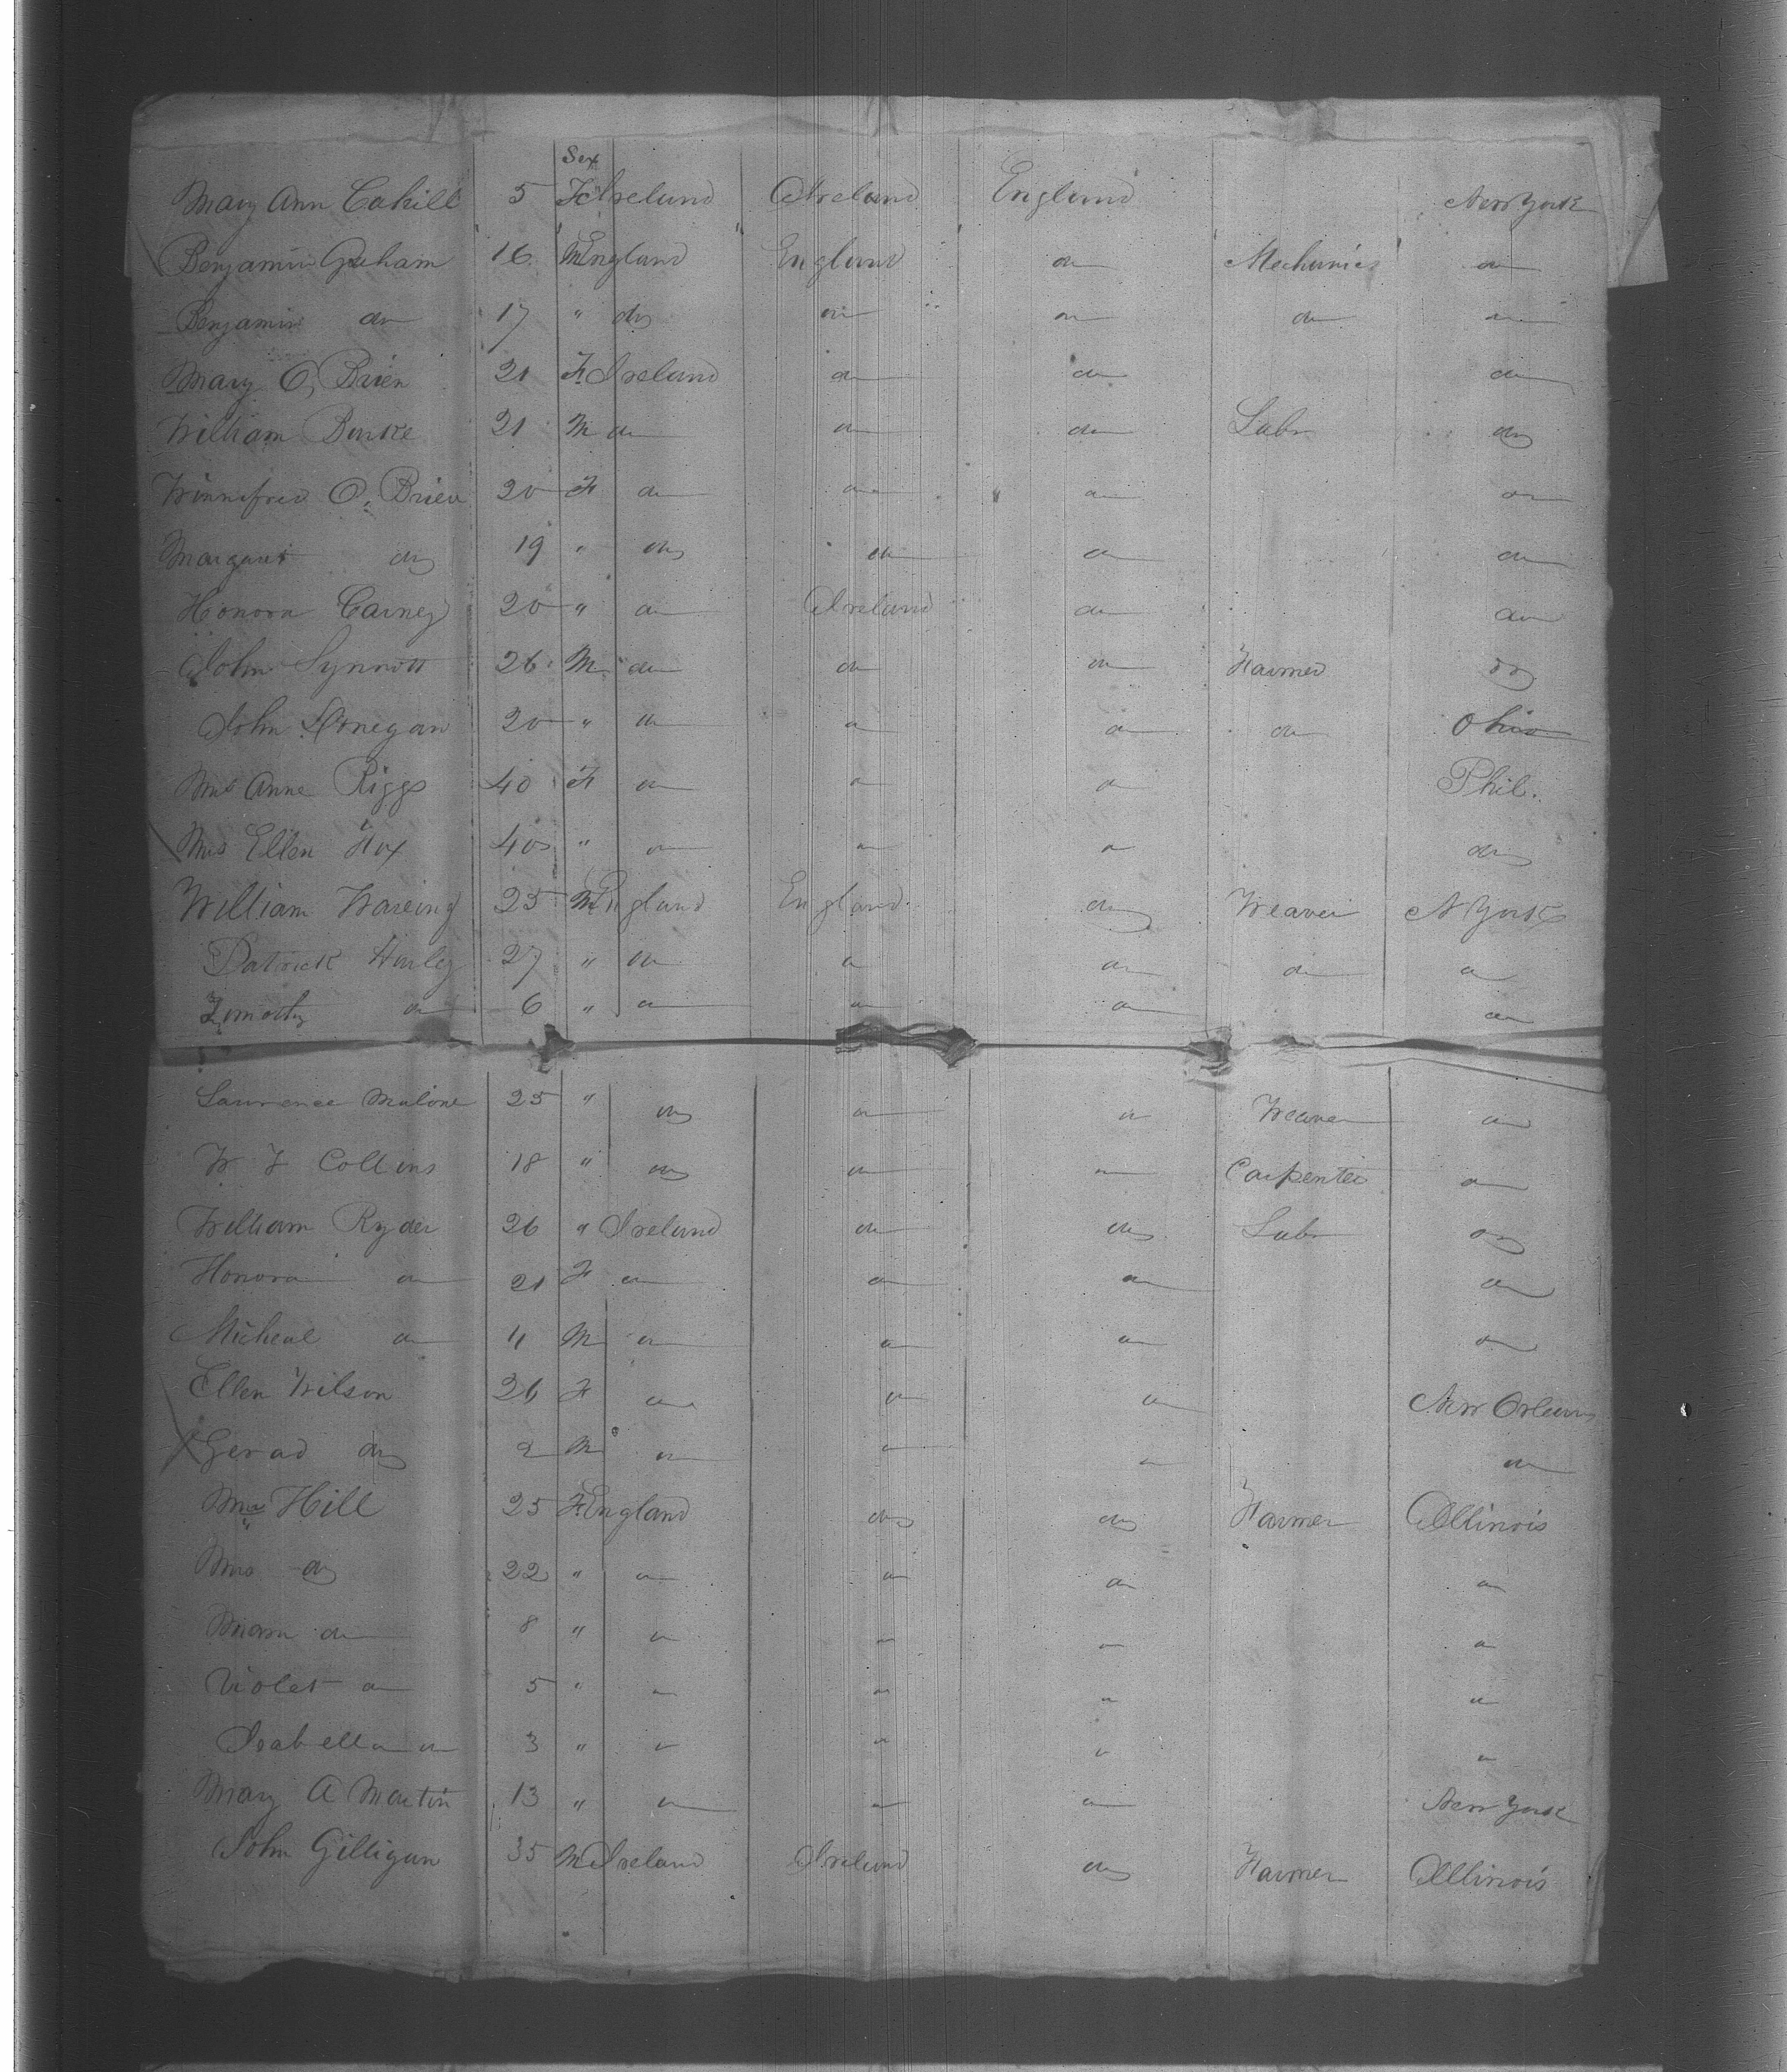 Sex
Mary Ann Cahill 5 F Ireland Ireland England New York
Benjamin Graham 16 M England England do Mechanics do
Benjamin do 17 " do do do do do
Mary O, Brien 21 F Ireland do do do
William Burke 21 M do do do Labr do
Winnifred O, Brien 20 F do do do do
Margaret do 19 " do do do do
Honora Carney 20 " do Ireland do do
John Synnott 26 M do do do Farmer do
John Donegan 20 " do do do do Ohio
Mrs Anne Riggs 40 F do do do Phil.
Mrs Ellen Fox 40 " do do do do
William Wareing 25 M England England do Weaver N York
Patrick Hurley 27 " do do do do do
Timothy do 6 " do do do do
Lawrence Malone 25 " do do do Weaver do
W F Collins 18 " do do do Carpenter do
William Ryder 26 " Ireland do do Labr do
Honora do 21 F do do do do
Micheal do 4 M do do do do
Ellen Wilson 26 F do do do New Orleans
Gerad do 2 M do do do do
Hill 25 F England do do Farmer Illinois
Mrs do 22 " do do do do
do 8 " do do do do
Violet do 5 " do do do do
Isabella do 3 " do do do do
Mary A Martin 13 " do do do New York
John Gilligan 35 M Ireland Ireland do Farmer Illinois